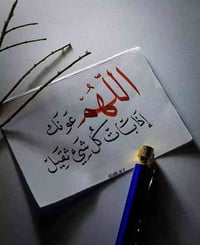 اللّهُمَّ عَونك
إذا بَاتَ كُلُّ شَيْءٍ ثَقِيلٌ